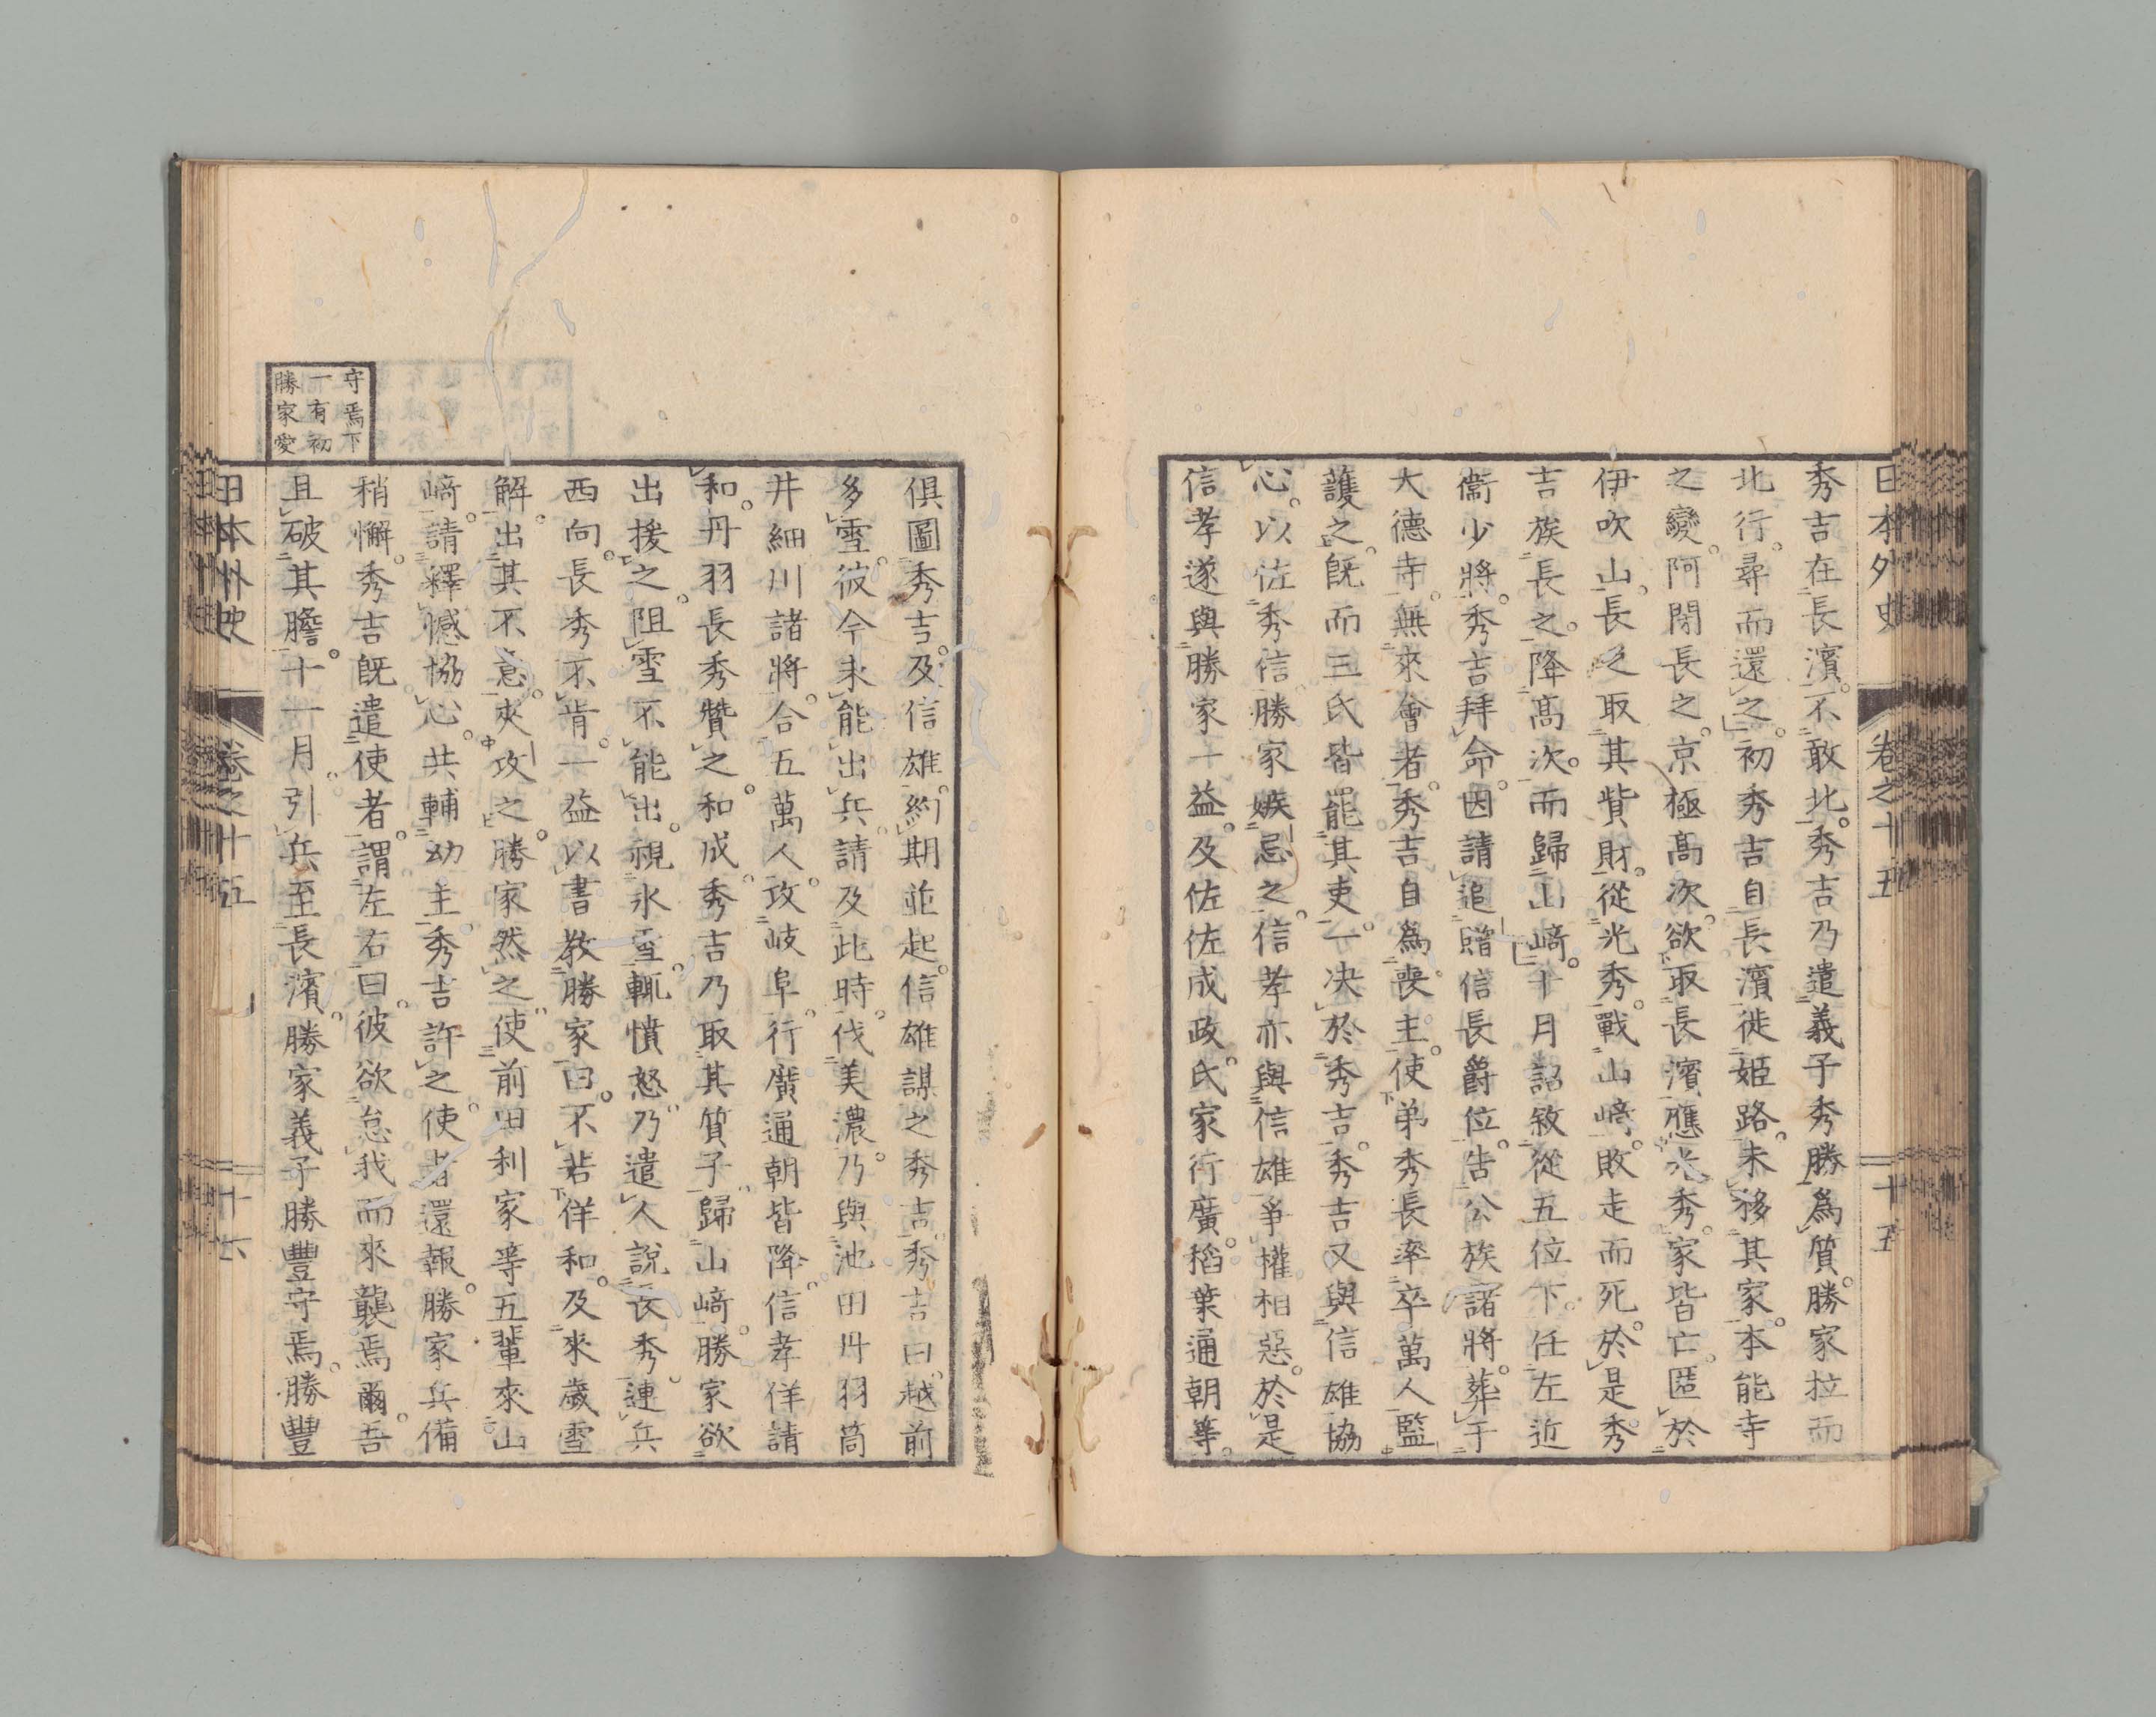 日本外史 卷之十五 十五
秀吉在長濱。不敢北。秀吉乃遣義子秀勝爲質。勝家拉而
北行。尋而還之。初秀吉自長濱徙姬路。未移其家。本能寺
之變。阿閉長之。京極高次。欲取長濱應光秀。家皆亡匿於
伊吹山。長之取其貲財。從光秀。戰山崎。敗走而死。於是秀
吉族長之。降高次。而歸山崎。十月詔敘從五位下。任左近
衞少將。秀吉拜命。因請追贈信長爵位。告公族諸將。葬于
大德寺。無來會者。秀吉自爲喪主。使弟秀長率卒萬人監
護之。既而三氏皆罷其吏。一決於秀吉。秀吉又與信雄協
心。以佐秀信。勝家嫉忌之。信孝亦與信雄爭權相惡。於是
信孝遂與勝家一益。及佐佐成政。氏家行廣。稻葉通朝等。
俱圖秀吉。及信雄。約期並起。信雄謀之秀吉。秀吉曰。越前
多雪。彼今未能出兵。請及此時。伐美濃。乃與池田丹羽筒
井細川諸將。合五萬人。攻岐阜。行廣通朝皆降。信孝佯請
和。丹羽長秀贊之。和成。秀吉乃取其質子。歸山崎。勝家欲
出援之。阻雪不能出。視氷雪。輒憤怒。乃遣人說長秀。連兵
西向。長秀不肯。一益以書教勝家曰。不若佯和。及來歲雪
解。出其不意。夾攻之。勝家然之。使前田利家等五輩來山
崎。請釋憾協心。共輔幼主。秀吉許之。使者還報。勝家兵備
稍懈。秀吉既遣使者。謂左右曰。彼欲怠我而來襲焉爾。吾
且破其膽。十一月。引兵至長濱。勝家義子勝豐守焉。勝豐
守焉下
一有初
勝家愛
日本外史 卷之十五 十六